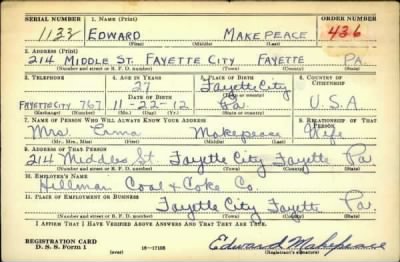 SERIAL NUMBER 1. NAME (Print) ORDER NUMBER
1122 EDWARD MAKEPEACE 436
(First) (Middle) (Last)
2. ADDRESS (Print)
214 MIDDLE ST. FAYETTE CITY FAYETTE PA.
(Number and street or R. F. D. number) (Town) (County) (State)
3. TELEPHONE 4. AGE IN YEARS 5. PLACE OF BIRTH 6. COUNTRY OF CITIZENSHIP
27 Fayette City
DATE OF BIRTH (Town or county)
FAYETTE CITY 767 11-22-12 Pa. U.S.A
(Exchange) (Number) (Mo.) (Day) (Yr.) (State or country)
7. NAME OF PERSON WHO WILL ALWAYS KNOW YOUR ADDRESS 8. RELATIONSHIP OF THAT PERSON
Mrs. Erma Makepeace Wife
(Mr., Mrs., Miss) (First) (Middle) (Last)
9. ADDRESS OF THAT PERSON
214 Middle St. Fayette City Fayette Pa
(Number and street or R. F. D. number) (Town) (County) (State)
10. EMPLOYER'S NAME
Hillman Coal & Coke Co.
11. PLACE OF EMPLOYMENT OR BUSINESS
Fayette City Fayette Pa.
(Number and street or R. F. D. number) (Town) (County) (State)
I AFFIRM THAT I HAVE VERIFIED ABOVE ANSWERS AND THAT THEY ARE TRUE.
REGISTRATION CARD
D. S. S. Form 1 (over) 16-17105 Edward Makepeace
(Registrant's signature)